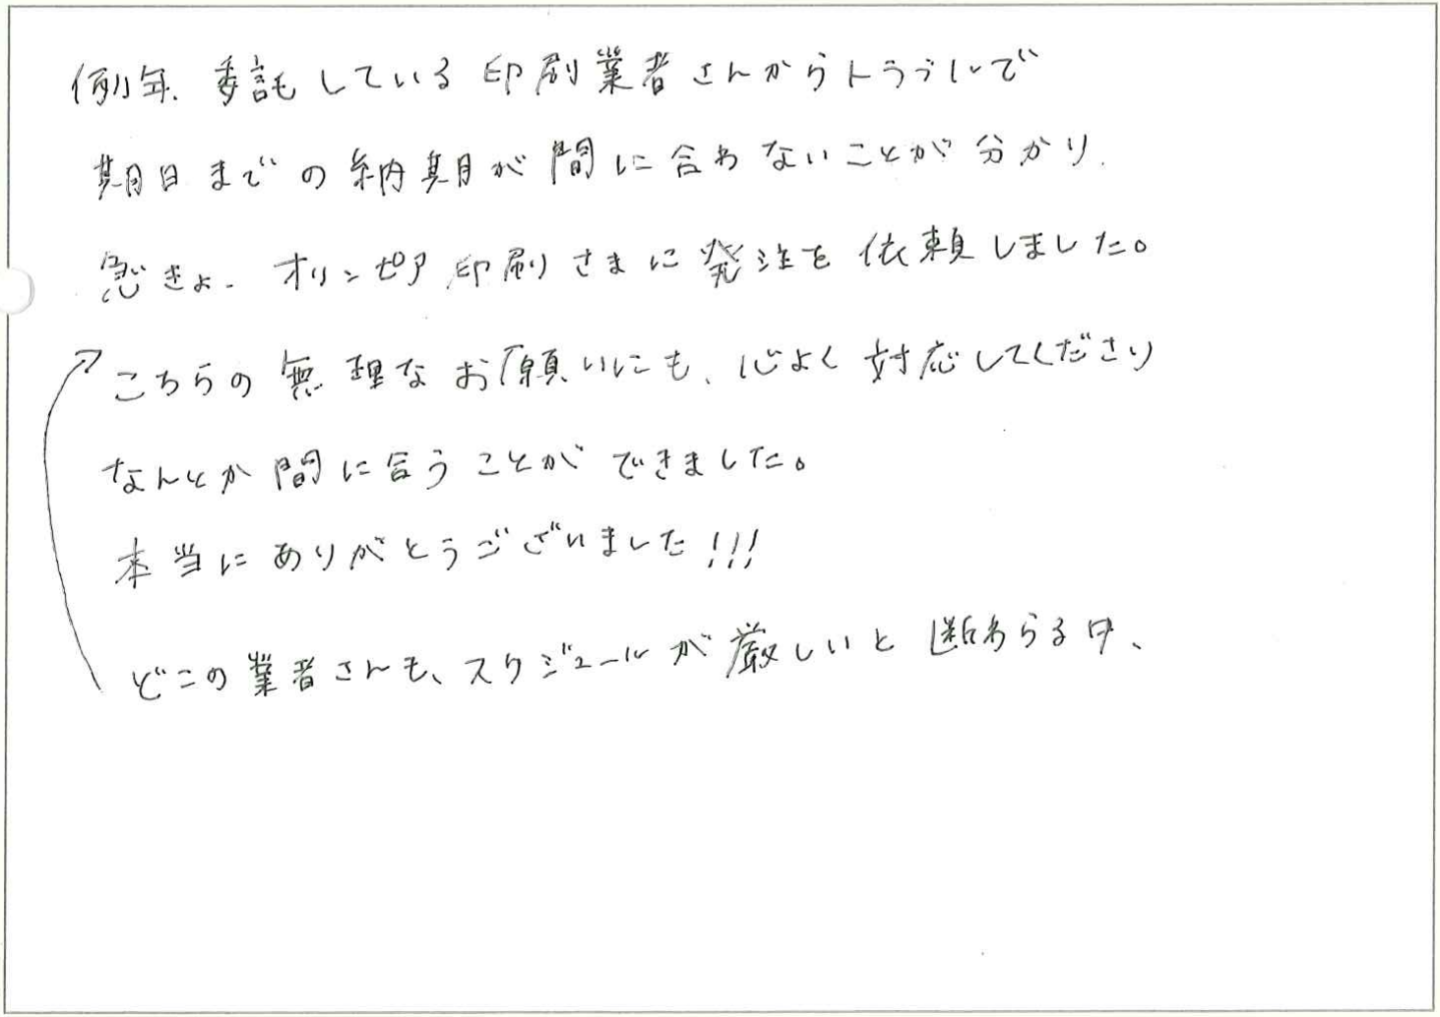 例年、委託している印刷業者さんからトラブルで
期日までの納期が間に合わないことが分かり、
急きょ、オリンピア印刷さまに発注を依頼しました。
こちらの無理なお願いにも、心よく対応してくださり
なんとか間に合うことができました。
本当にありがとうございました!!!
どこの業者さんも、スケジュールが厳しいと断わらる中、